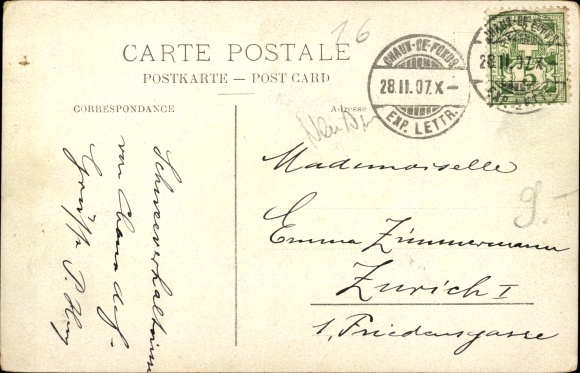 CARTE POSTALE
POSTKARTE — POST CARD
CORRESPONDANCE
Adresse
26
CHAUX-DE-FONDS
28.II.07.X—
EXP. LETTR.
CHAUX-DE-FONDS
28.II.07.X—
EXP. LETTR.
5
9.-
Mademoiselle
Emma Zimmermann
Zurich I
1, Friedensgasse
von Chaux d. f.
Grüsse P. Hug